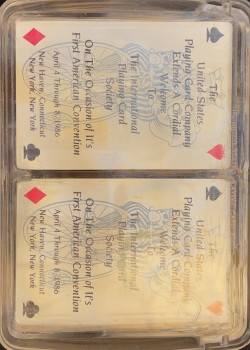 The
United States
Playing Card Company
Extends A Cordial
Welcome
To
The International
Playing Card
Society
On The Occasion of It's
First American Convention
April 4 Through 8, 1986
New Haven, Connecticut
New York, New York
The
United States
Playing Card Company
Extends A Cordial
Welcome
To
The International
Playing Card
Society
On The Occasion of It's
First American Convention
April 4 Through 8, 1986
New Haven, Connecticut
New York, New York